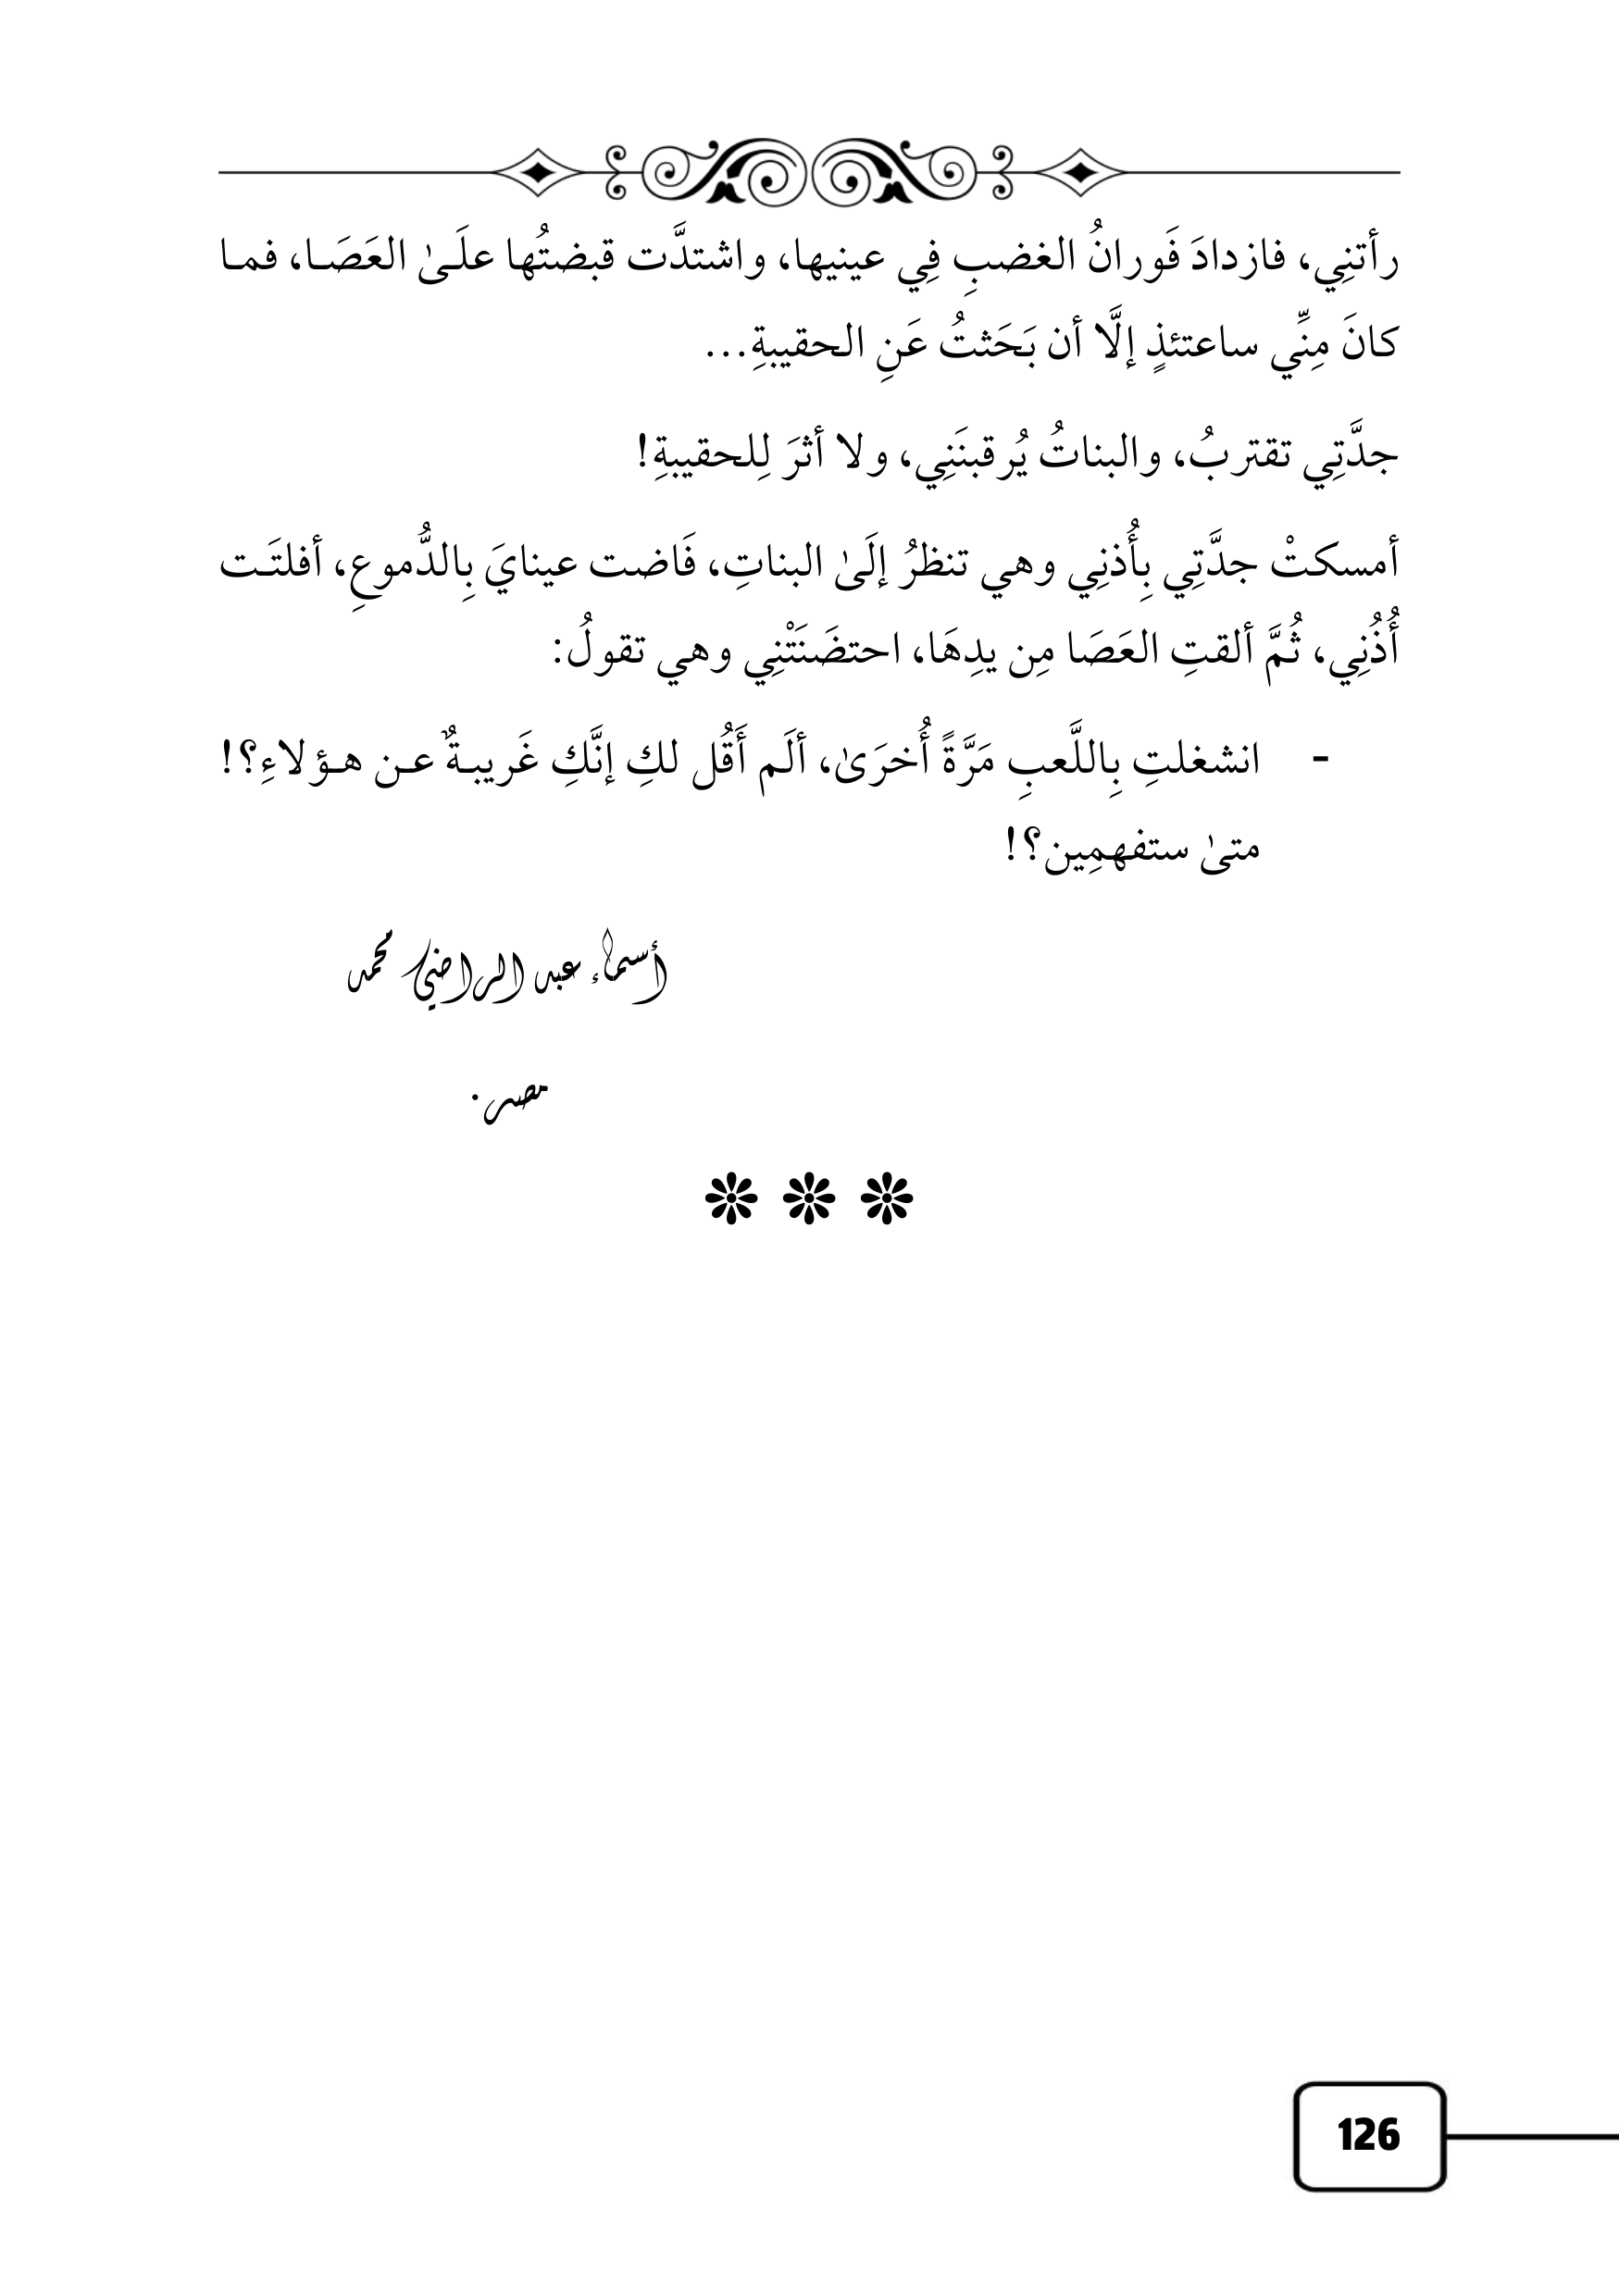 رأتنِي، فازدادَ فَورانُ الغضبِ فِي عينيها، واشتدَّت قبضتُها علَىٰ العَصَا، فما
كانَ مِنِّي ساعتئذٍ إلَّا أن بَحَثتُ عَنِ الحقيبةِ...
جدَّتِي تقتربُ، والبناتُ يُرقبنَنِي، ولا أثرَ لِلحقيبةِ!
أمسكتْ جدَّتِي بِأُذنِي وهي تنظرُ إلَىٰ البناتِ، فَاضت عينايَ بِالدُّموعِ، أفلتَت
أُذُنِي، ثُمَّ ألقتِ العَصَا مِن يدِهَا، احتضَنَتْنِي وهي تقولُ:
- انشغلتِ بِاللَّعبِ مَرَّةً أُخرَىٰ، ألَم أَقُل لكِ إنَّكِ غَريبةٌ عن هؤلاءِ؟!
متىٰ ستفهمِين؟!
أسماء عبد الراضي محمد
مصر.
126